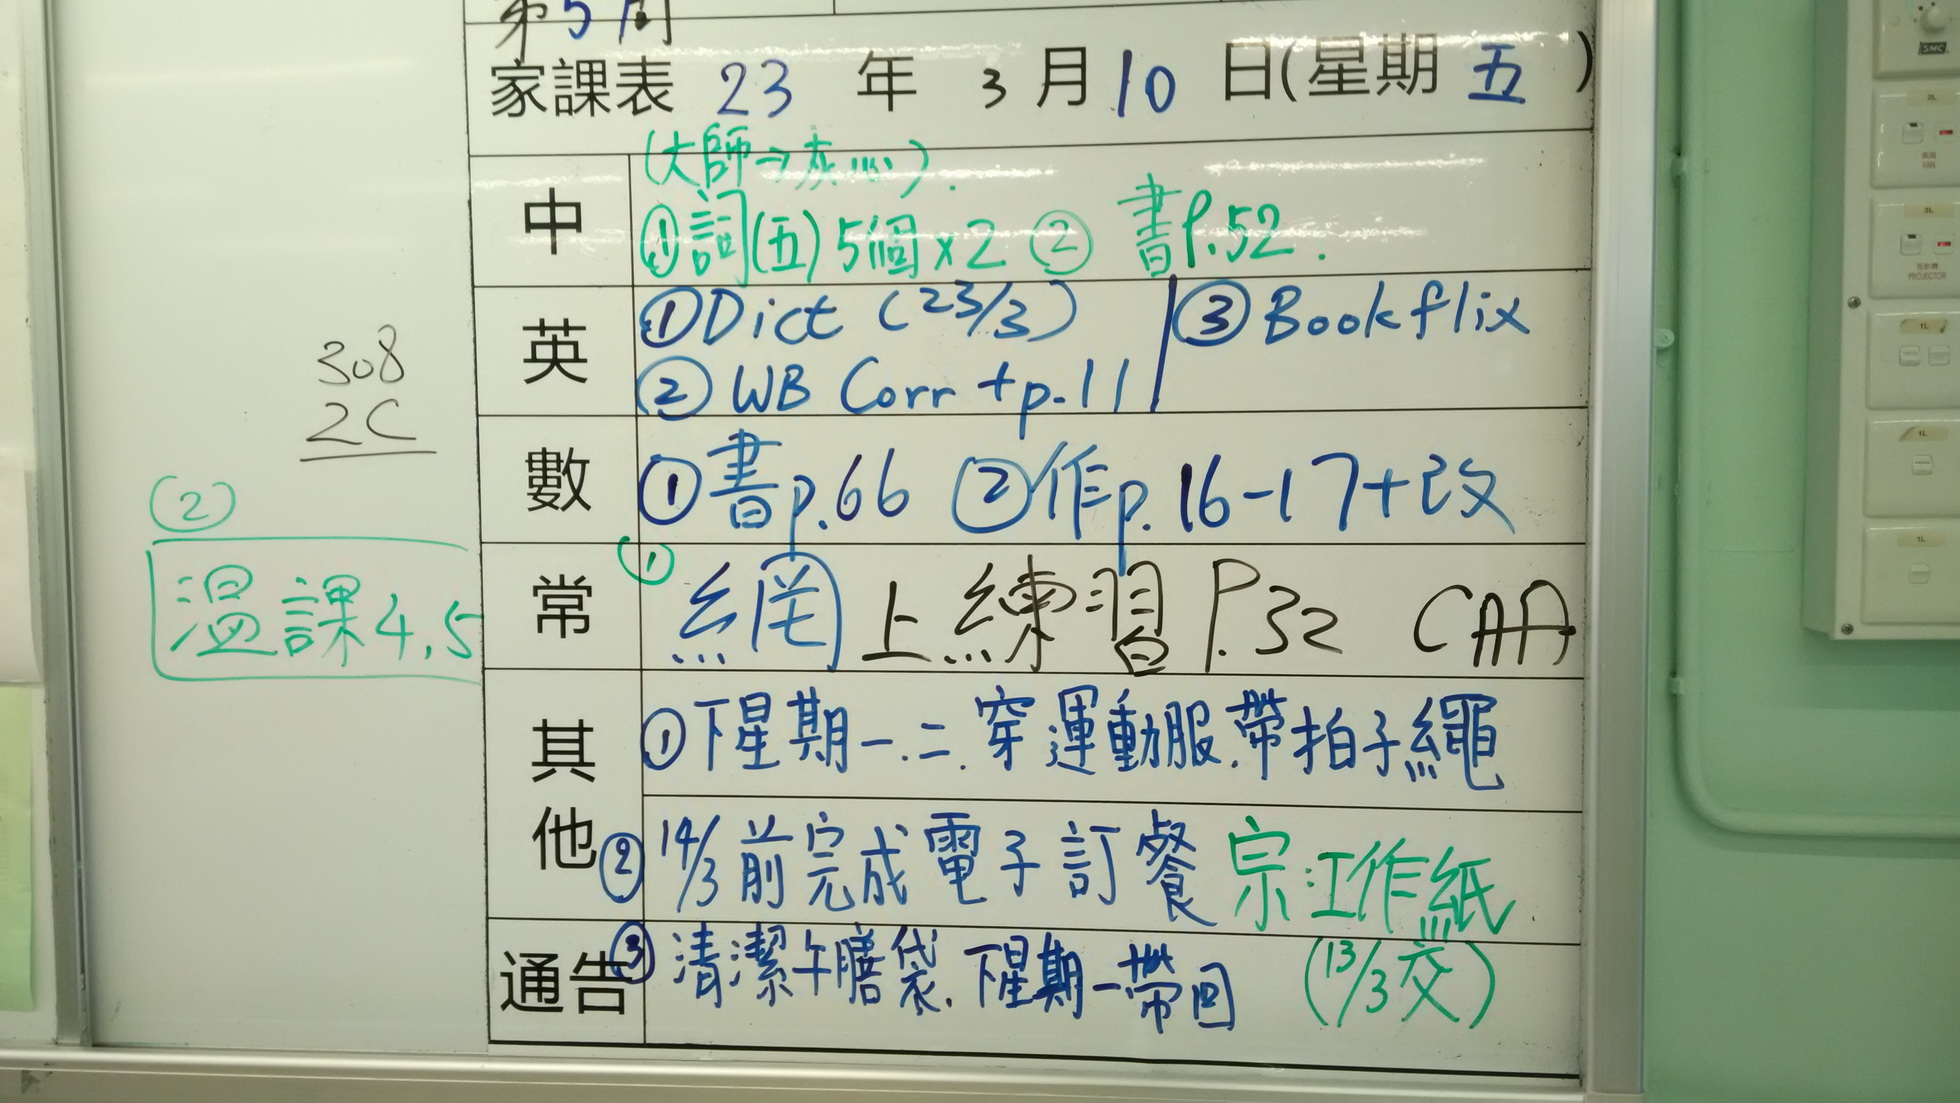 第5周
家課表 23 年 3 月 10 日(星期 五 )
中
(大師→灰心).
①詞(五) 5個×2 ② 書P.52.
英
①Dict (23/3)
② WB Corr + p.11
③ Bookflix
數 ①書p.66 ②作p.16-17+改
常 ① 網上練習 P.32 CAA
其他
①下星期一.二.穿運動服.帶拍子繩
② 14/3前完成電子訂餐 宗工作紙
(13/3交)
通告 ③ 清潔午膳袋.下星期一帶回
308
2C
(2)
溫課4,5
SMC
2L
FAN
3L
PROJECTOR
1L
1L
1L